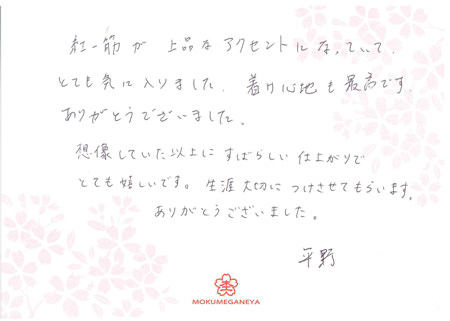 紅一筋が 上品なアクセントになっていて、
とても気に入りました。着け心地も最高です。
ありがとうございました。
想像していた以上に すばらしい 仕上がりで
とても嬉しいです。生涯大切に つけさせてもらいます。
ありがとうございました。
平野
MOKUMEGANEYA